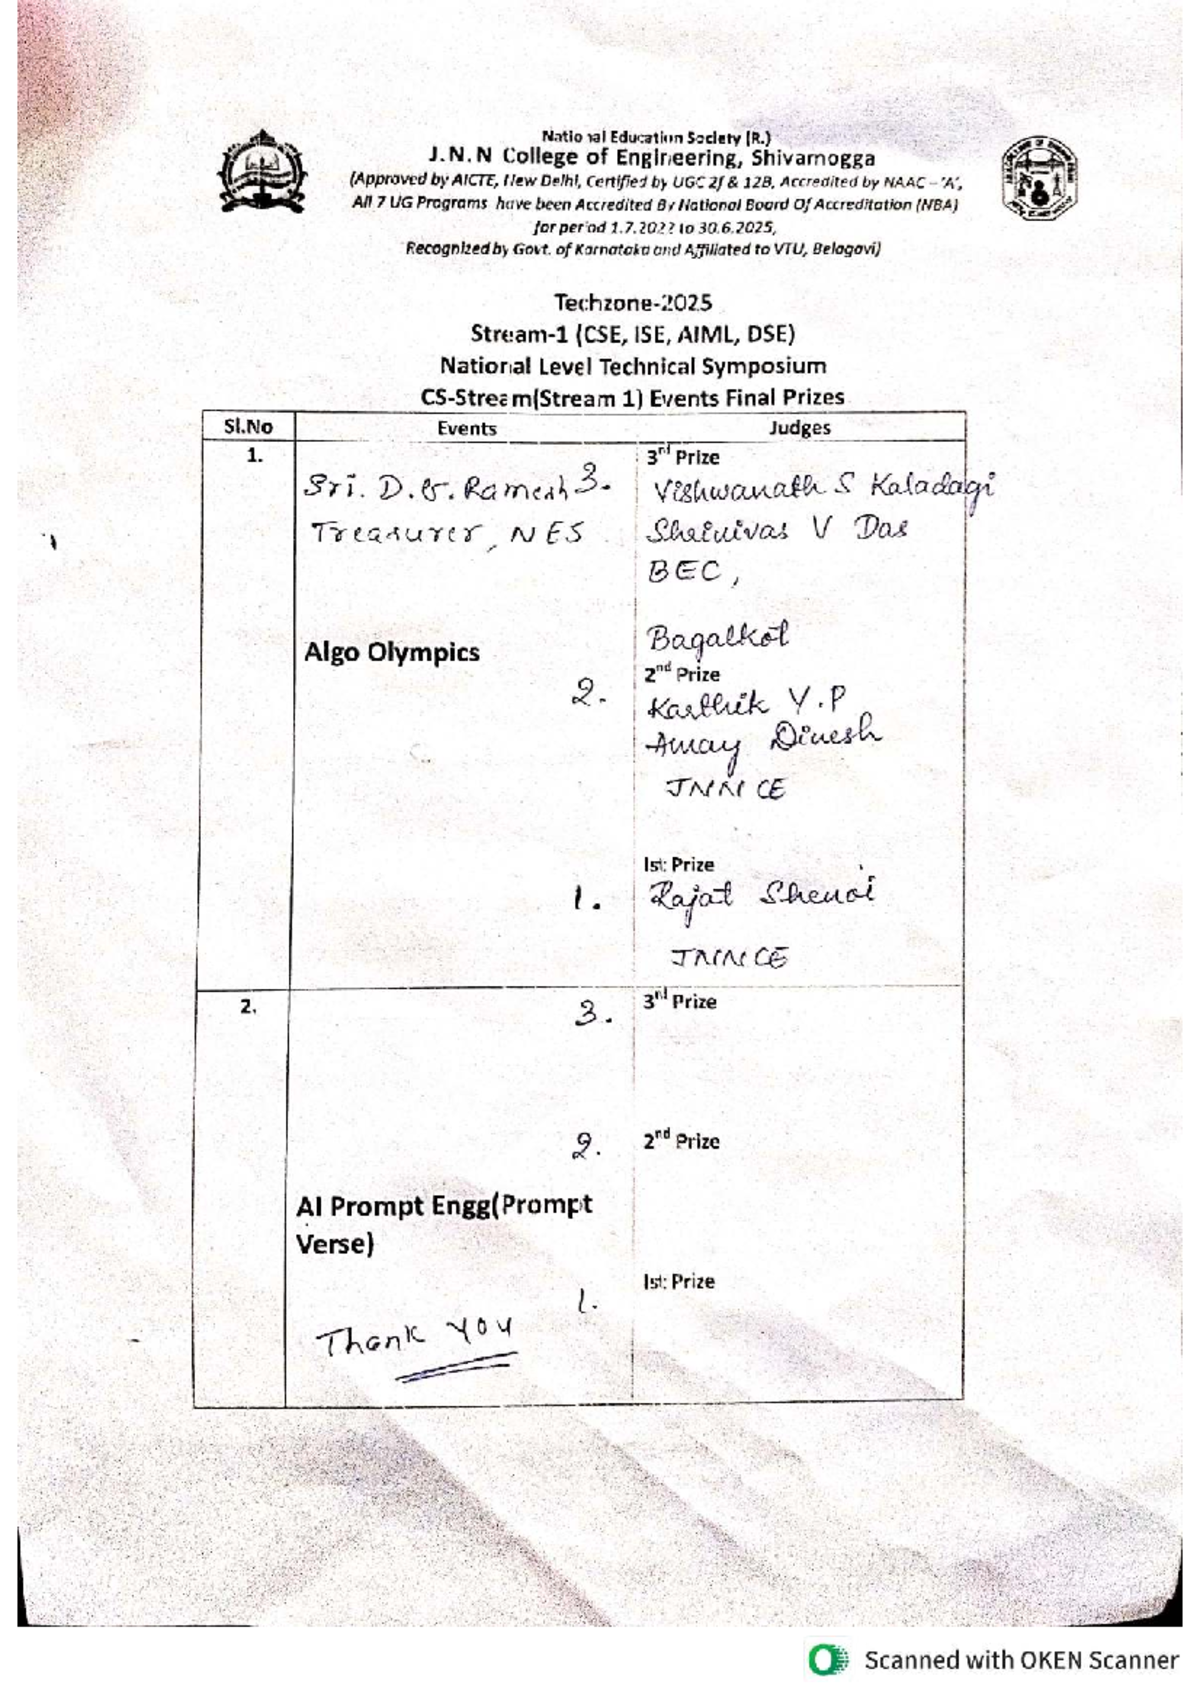 National Education Society (R.)
J.N.N College of Engineering, Shivamogga
(Approved by AICTE, New Delhi, Certified by UGC 2f & 12B, Accredited by NAAC – 'A',
All 7 UG Programs have been Accredited By National Board Of Accreditation (NBA)
for period 1.7.2022 to 30.6.2025,
Recognized by Govt. of Karnataka and Affiliated to VTU, Belagavi)
Techzone-2025
Stream-1 (CSE, ISE, AIML, DSE)
National Level Technical Symposium
CS-Stream(Stream 1) Events Final Prizes
Sl.No Events Judges
1. 3rd Prize
Sri. D.G. Ramesh 3. Vishwanath S Kaladagi
Treasurer, NES Shrinivas V Das
BEC,
Bagalkot
Algo Olympics
2nd Prize
2. Karthik Y.P
Amay Dinesh
JNNCE
Ist: Prize
1. Rajat Shenoi
JNNCE
2. 3rd Prize
3.
2. 2nd Prize
AI Prompt Engg(Prompt
Verse)
Ist: Prize
1.
Thank You
Scanned with OKEN Scanner